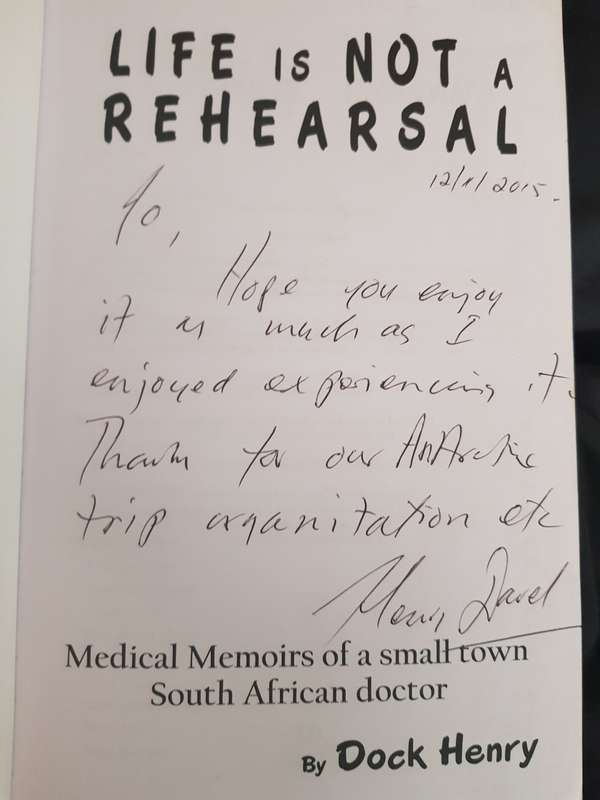 LIFE IS NOT A
REHEARSAL
12/11/2015.
Jo,
Hope you enjoy
it as much as I
enjoyed experiencing it.
Thanks for our AntArctic
trip organization etc
Henry Davel
Medical Memoirs of a small town
South African doctor
By Dock Henry